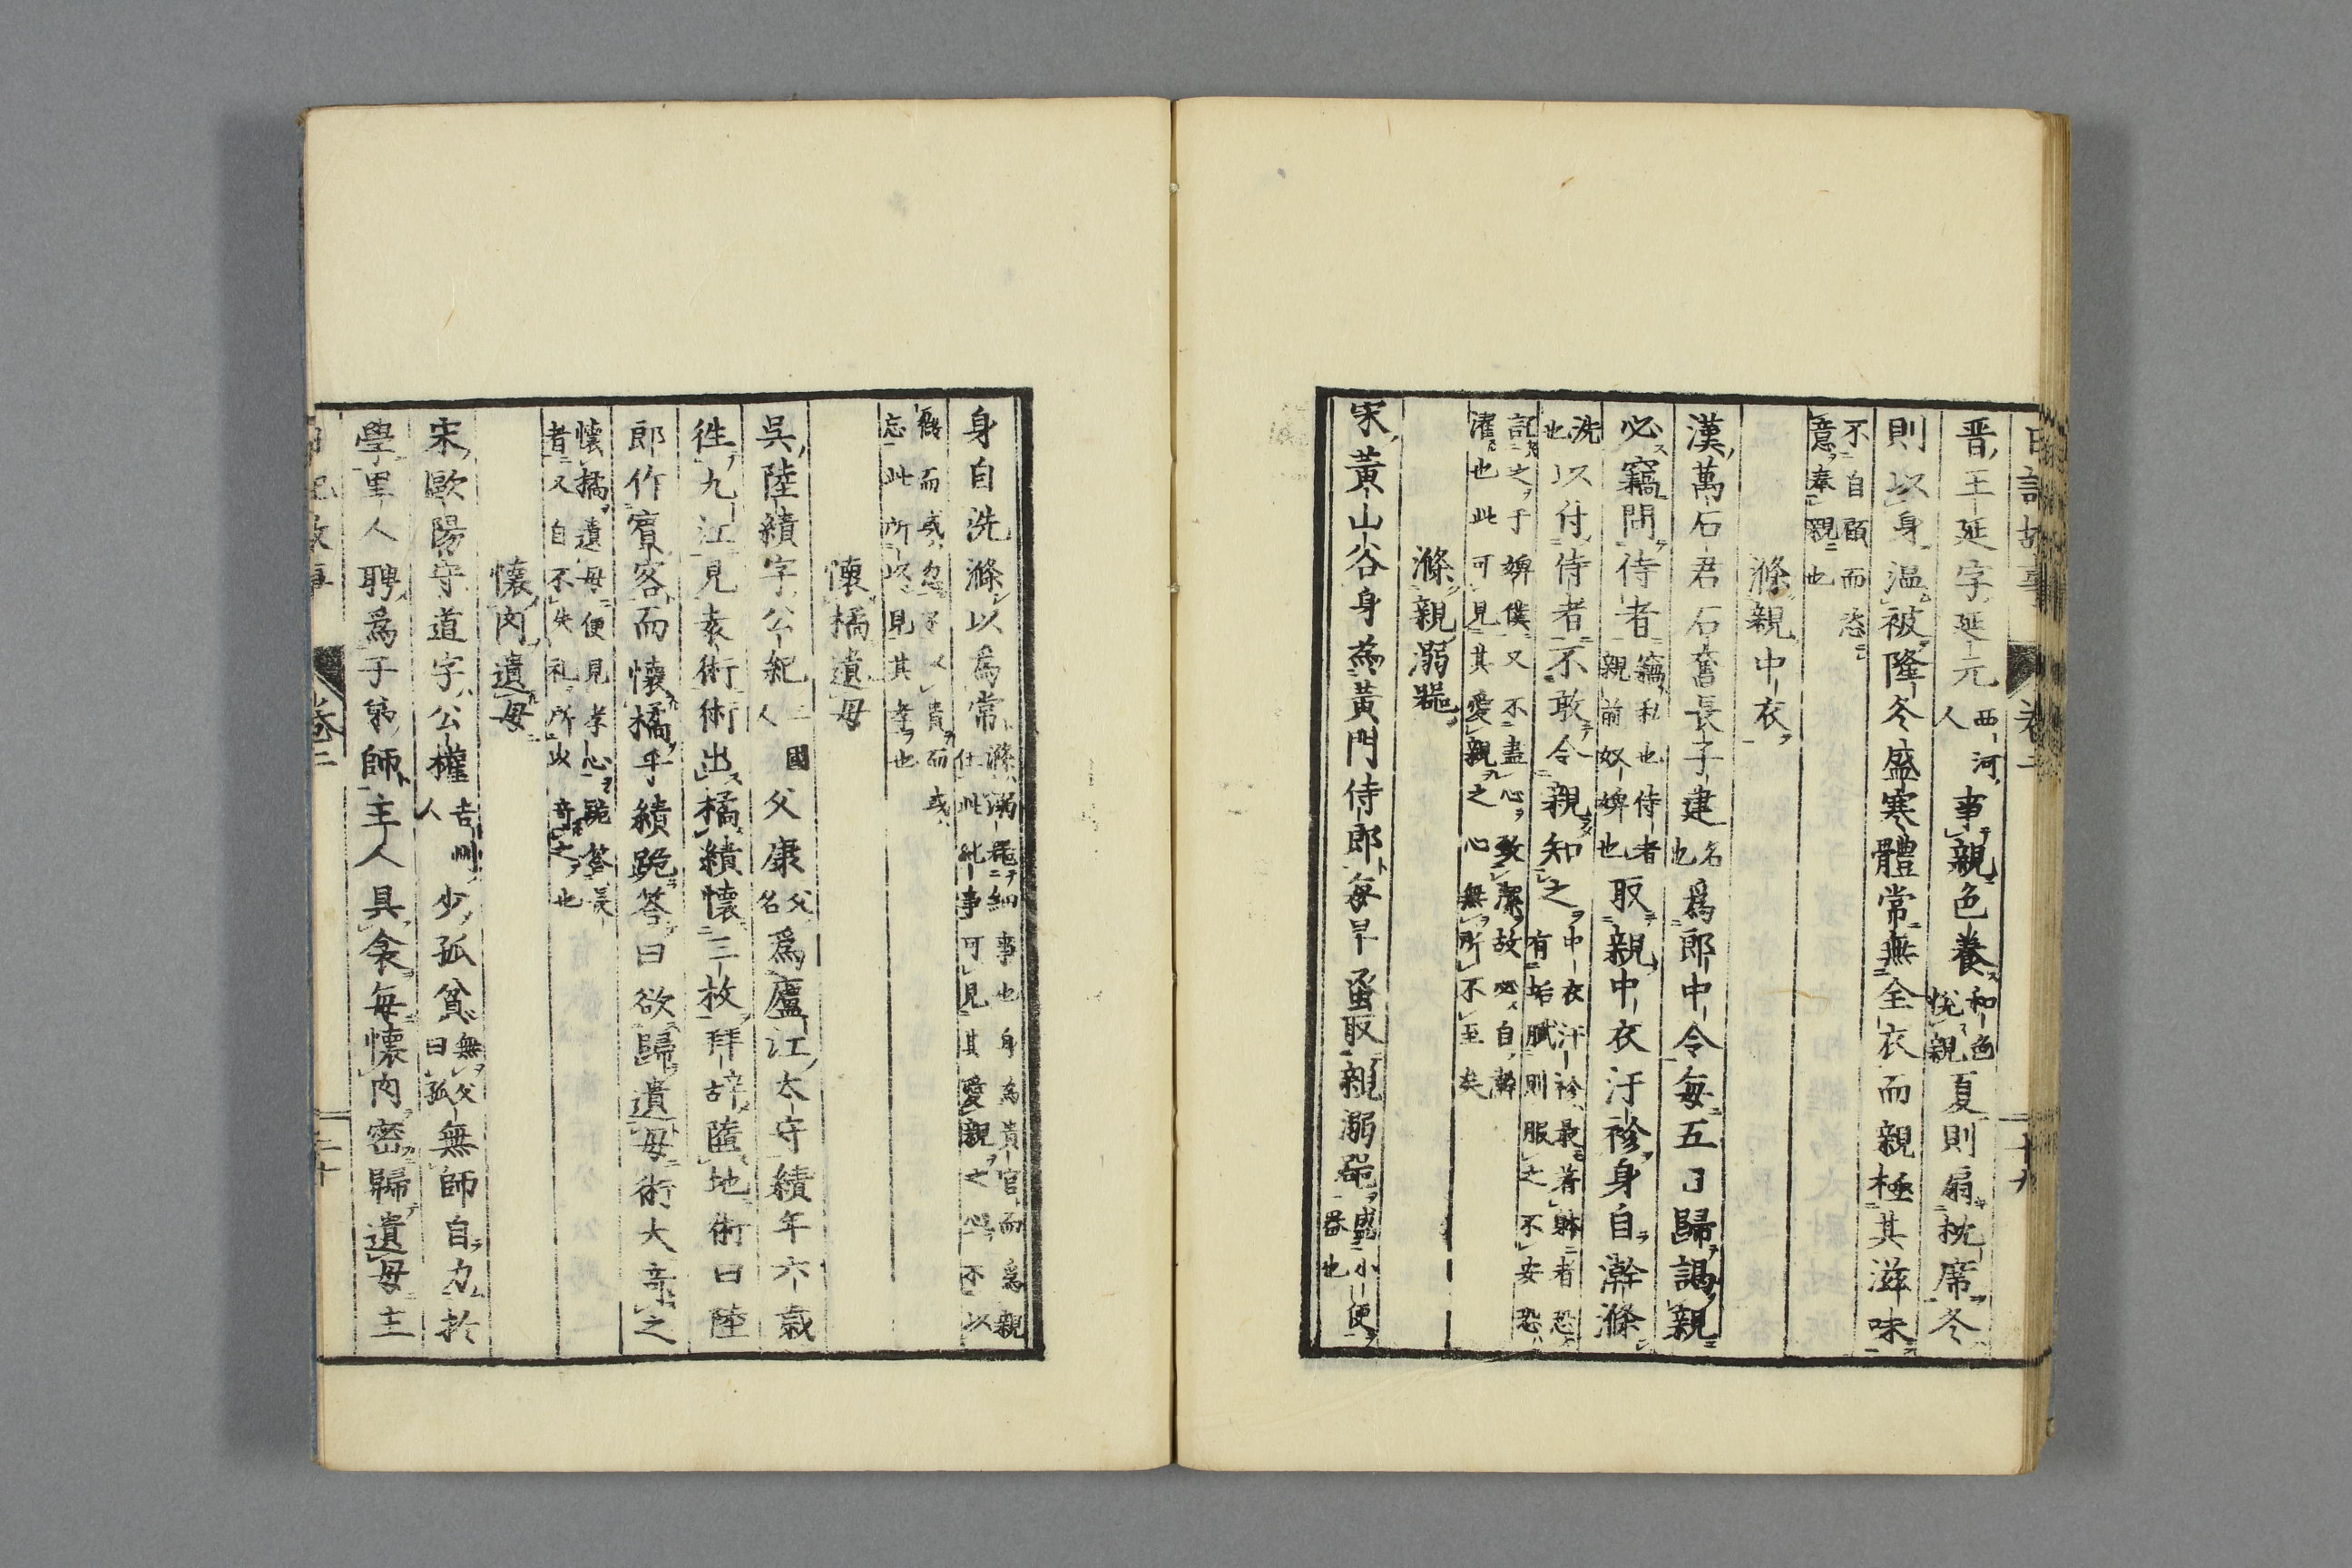 日記故事 卷二 二十九
晋王延字延元西河人事親色養和色悅親夏則扇枕席冬
則以身温被隆冬盛寒體常無全衣而親極其滋味
不自顧而恣意奉親也
滌親中衣
漢萬石君石奮長子建名也爲郎中令每五日歸謁親
必竊問侍者竊私也侍者親前奴婢也取親中衣汙袗身自澣滌
洗也以付侍者不敢令親知之中衣汗袗最著躰者恐有垢膩則服之不安恐
記之于婢僕又不盡心致潔故必自幹濯也此可見其愛親之心無所不至矣
滌親溺器
宋黃山谷身為黃門侍郎每早蚤取親溺器盛小便器也
身自洗滌以爲常滌溺器細事也身為貴官而爲親仕此此事可見其愛親之心不以
而或忽不以貴而或忘此所以見其孝也
懷橘遺母
呉陸績字公紀三國人父康父名爲廬江太守績年六歲
徃九江見袁術術出橘績懷三枚拜辞墮地術曰陸
郎作賓客而懷橘乎績跪答曰欲歸遺母術大竒之
懷橘遺母便見孝心跪答長者又自不失礼所以竒之也
懷肉遺母
宋歐陽守道字公權吉州人少孤貧無父曰孤無師自力於
學里人聘爲子弟師主人具食每懷肉密歸遺母主
日記故事 卷二 三十